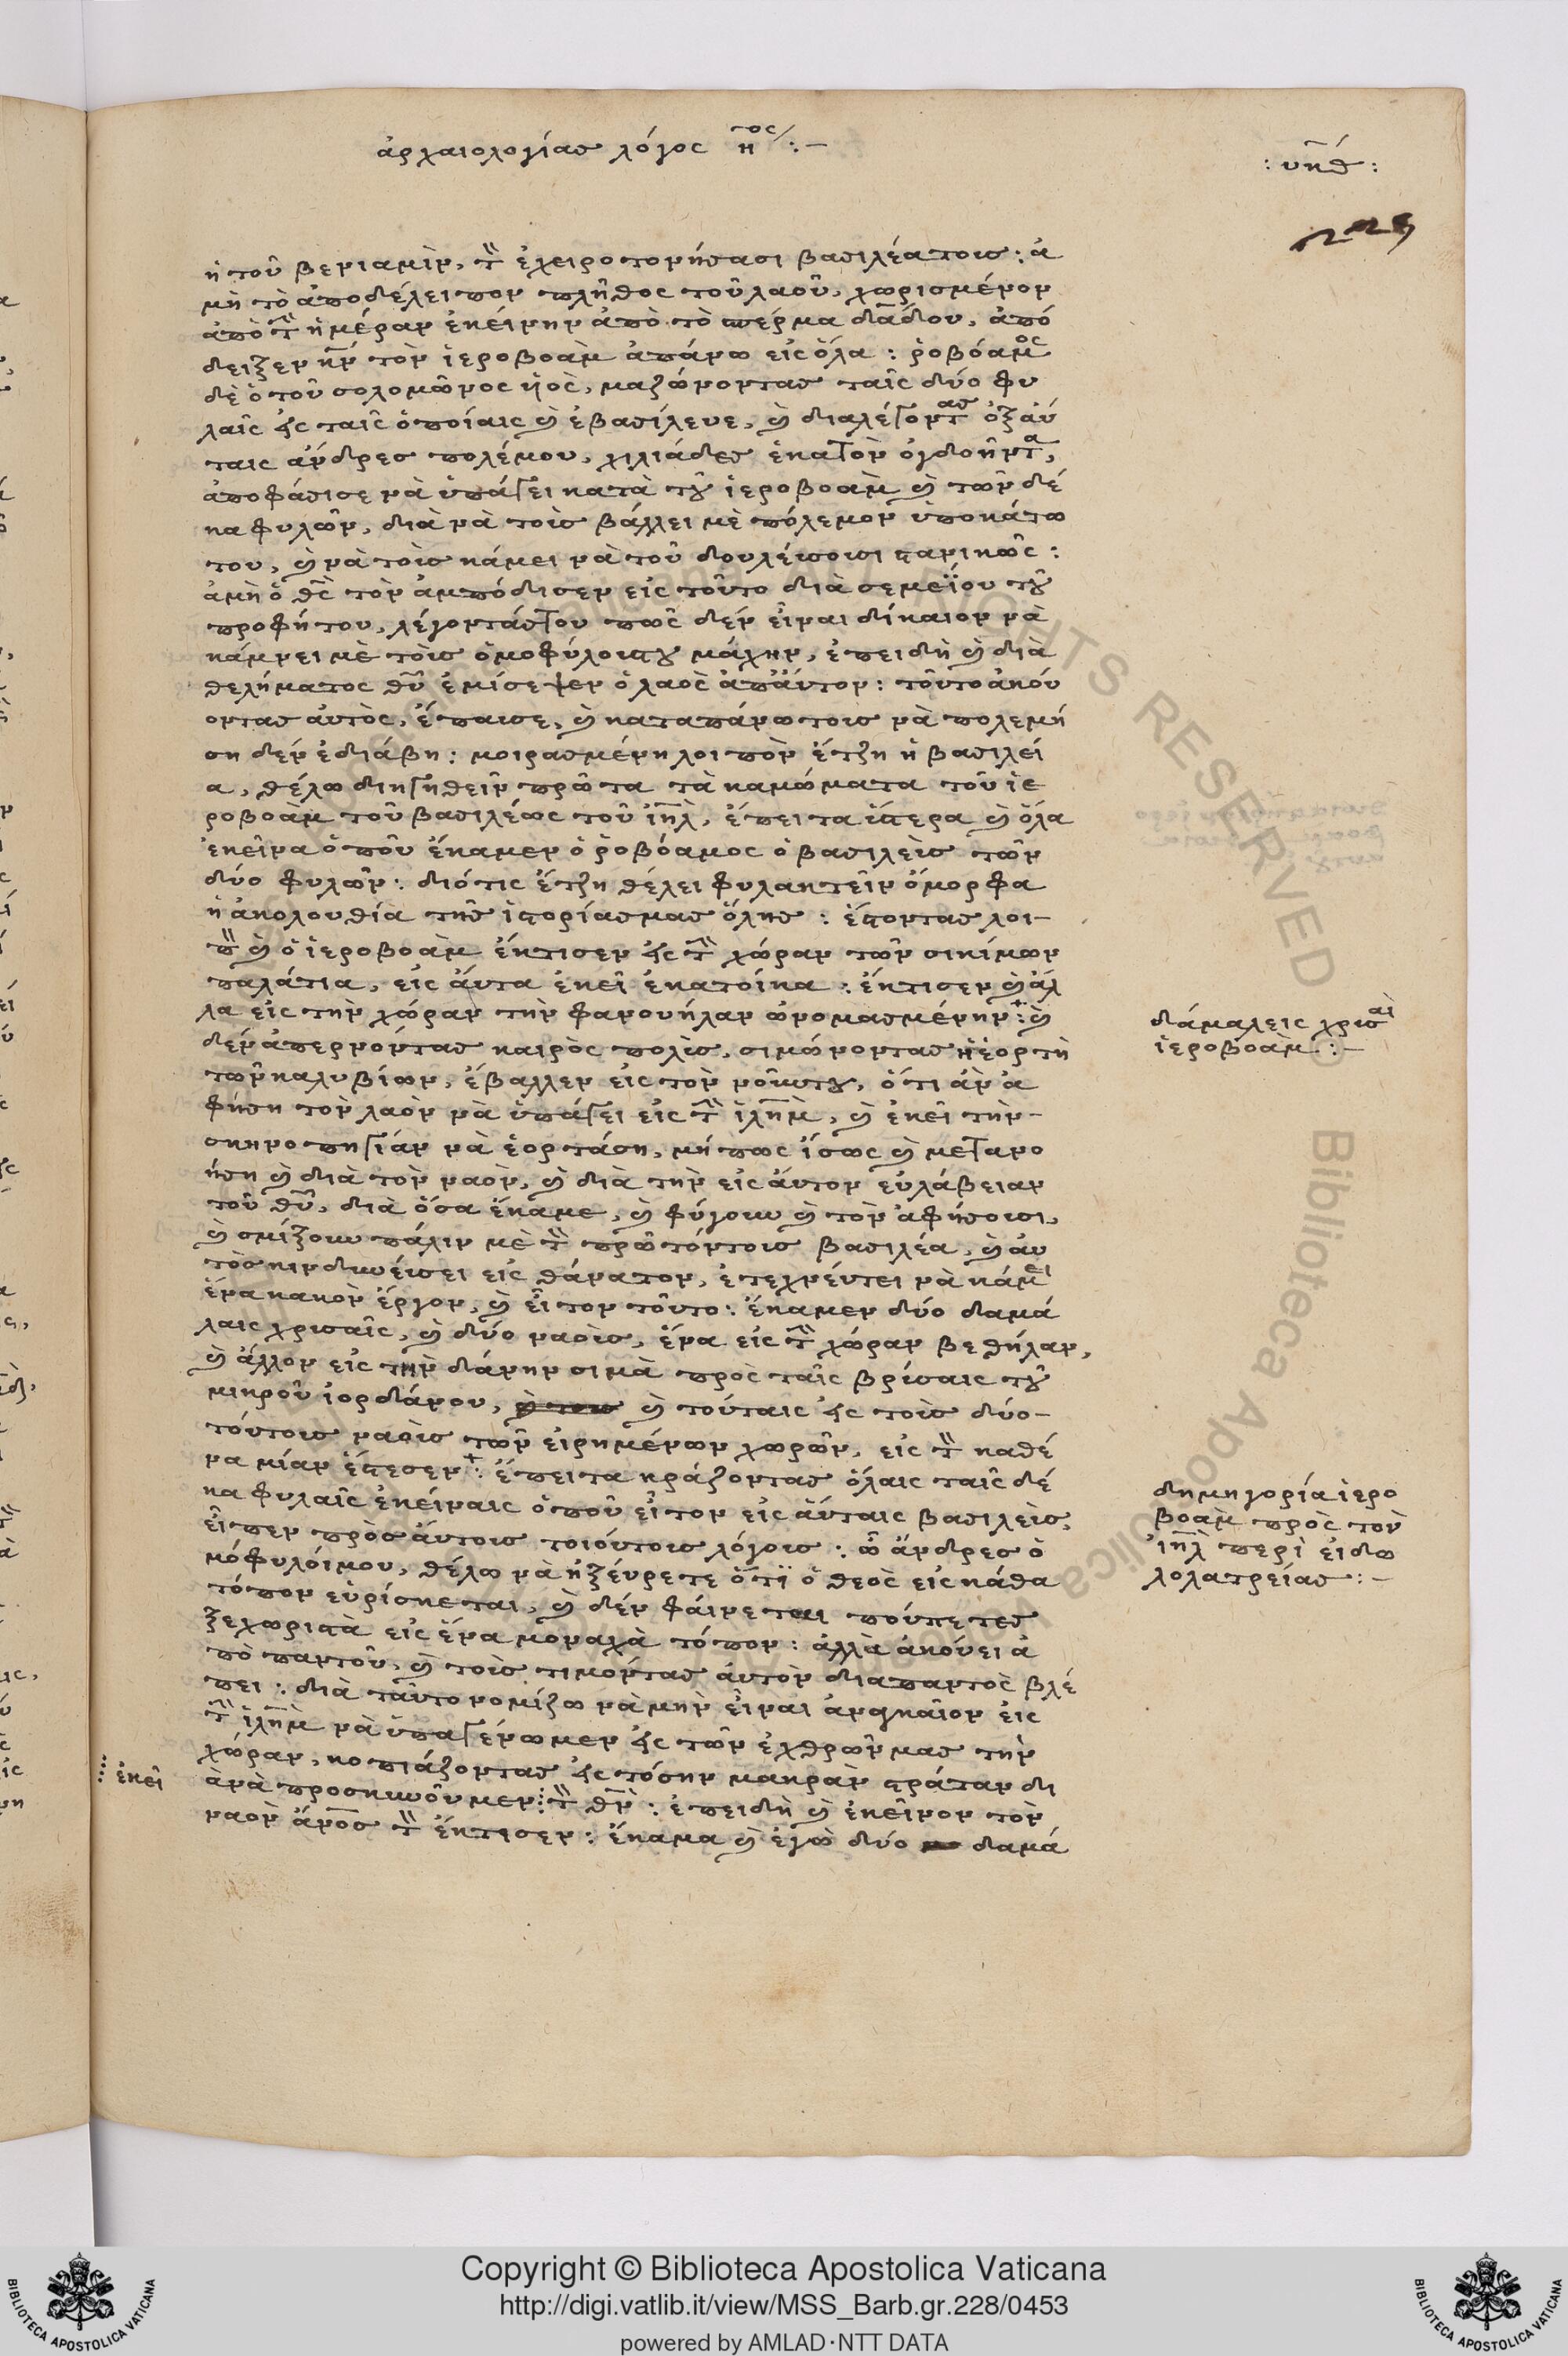 ἀρχαιολογίας λόγος η̅ος :—
: υκθ :
225
ἡ τοῦ βενιαμὶν, τὸν ἐχειροτονήσασι βασιλέα τοις : ἀ
μὴ τὸ ἀποδέλειπον πλῆθος τοῦ λαοῦ, χωρισμένον
ἀπὸ τὴν ἡμέραν ἐκείνην ἀπὸ τὸ σπέρμα δα̅δου, ἀπό
δειξεν κν̅ τὸν ἱεροβοὰμ ἀπάνω εἰς ὅλα : ῥοβόαμος
δὲ ὁ τοῦ σολομῶνος ὑὸς, μαζώνοντας ταῖς δύο φυ
λαῖς εἰς ταῖς ὁποίαις καὶ ἐβασίλευε, καὶ διαλέγοντας ὀξ αὐ
ταις ἄνδρες πολέμου, χιλιάδες ἑκατὸν ὀγδοῆντα,
ἀποφάσισε νὰ ὑπάγει κατὰ τοῦ ἱεροβοὰμ καὶ τῶν δέ
κα φυλῶν, διὰ νὰ τοὶς βάλλει μὲ πόλεμον ὑποκάτω
του, καὶ νὰ τοὶς κάμει νὰ τοῦ δουλέυσουσι στανικῶς :
ἀμὴ ὁ θς̅ τὸν ἀμπόδισεν εἰς τοῦτο διὰ σεμεΐου τοῦ
προφήτου, λέγοντάς του πῶς δὲν εἶναι δίκαιον νὰ
κάμνει μὲ τοὶς ὁμοφύλους του μάχην, ἐπειδὴ καὶ διὰ
θελήματος θυ̅ ἐμίσεψεν ὁ λαὸς ἀπ' αὔτον : τοῦτο ἀκόυ
οντας ἀυτὸς, ἔπαυσε, καὶ καταπάνω τοις νὰ πολεμή
ση δὲν ἐδιάβη : μοιρασμένη λοιπὸν ἔτζη ἡ βασιλεί
α, θέλω διηγηθεῖν πρῶτα τὰ καμώματα τοῦ ἱε
ροβοὰμ τοῦ βασιλέως τοῦ ιη̅λ, ἔπειτα ὕστερα καὶ ὅλα
ἐκεῖνα ὁποῦ ἔκαμεν ὁ ῥοβόαμος ὁ βασιλεὶς τῶν
δύο φυλῶν : διότις ἔτζη θέλει φυλακτεῖν ὄμορφα
ἡ ἀκολουθία τῆς ἱστορίας μας ὅλης : ἔστοντας λοι—
πὸν καὶ ὁ ἱεροβοὰμ ἔκτισεν εἰς τὴν χώραν τῶν σικίμων
παλάτια, εἰς ἀυτα ἐκεῖ ἐκατοίκα : ἔκτισεν καὶ ἄλ
λα εἰς τὴν χώραν τὴν φανουήλαν ὠνομασμένην : καὶ
δὲν ἀπερνόντας καιρὸς πολὶς, σιμώνοντας ἡ ἑορτὴ
τῶν καλυβίων, ἔβαλλεν εἰς τὸν νοῦν του, ὅτι ἂν ἀ
φήση τὸν λαὸν νὰ ὑπάγει εἰς τὴν ἱλη̅μ, καὶ ἐκεῖ τὴν—
σκηνοπηγίαν νὰ ἑορτάση, μήπως ἴσως καὶ μετανο
ήση καὶ διὰ τὸν ναὸν, καὶ διὰ τὴν εἰς ἄυτον ἐυλάβειαν
τοῦ θυ̅, διὰ ὅσα ἔκαμε, καὶ φύγουν καὶ τὸν ἀφήσουσι,
καὶ σμίξουν πάλιν μὲ τὸν πρῶτόν τοις βασιλέα, καὶ ἀυ
τὸς κινδυνέυσει εἰς θάνατον, ἐτεχνέυτει νὰ κάμει
ἕνα κακὸν ἔργον, καὶ εἶτον τοῦτο : ἔκαμεν δύο δαμά
λαις χρισαῖς, καὶ δύο ναοὶς, ἕνα εἰς τὴν χώραν βεθήλαν,
καὶ ἄλλον εἰς τὴν δάνην σιμὰ πρὸς ταῖς βρίσαις τοῦ
μικροῦ ἰορδάνου, καὶ τούταις εἰς τοὶς δύο—
τόυτοις ναοὶς τῶν εἰρημένων χωρῶν, εἰς τὸν καθέ
να μίαν ἔστεσεν : ἔπειτα κράζοντας ὅλαις ταῖς δέ
κα φυλαῖς ἐκείναις ὁποῦ εἶτον εἰς ἄυταις βασιλεὶς,
εἶπεν πρὸς ἄυτοις τοιόυτοις λόγοις : ὦ ἄνδρες ὁ
μόφυλόιμου, θέλω νὰ ἠξέυρετε ὅτι ὁ θεὸς εἰς κάθα
τόπον εὑρίσκεται, καὶ δὲν φάινεται πούπετες
ξεχωριστὰ εἰς ἕνα μοναχὰ τόπον : ἀλλὰ ἀκόυει ἀ
πὸ παντοῦ, καὶ τοὶς τιμόντας ἀυτὸν διαπαντὸς βλέ
πει : διὰ τᾶυτο νομίζω νὰ μὴν εἶναι ἀναγκαῖον εἰς
τὴν ἱλη̅μ νὰ ὑπαγένωμεν εἰς τῶν ἐχθρῶν μας τὴν
χώραν, κοπιάζοντας εἰς τόσην μακρὰν στράταν δι
ὰ νὰ προσκυνοῦμεν : τὸν θν̅ : ἐπειδὴ καὶ ἐκεῖνον τὸν
ναὸν ἄνο̅ς τὸν ἔκτισεν : ἔκαμα καὶ ἐγὼ δύο δαμά
δάμαλεις χρισαὶ
ἱεροβοὰμ :—
δημηγορία ἱερο
βοὰμ πρὸς τὸν
ἰη̅λ περὶ εἰδω
λολατρείας :—
⁝ ἐκεῖ
Copyright © Biblioteca Apostolica Vaticana
http://digi.vatlib.it/view/MSS_Barb.gr.228/0453
powered by AMLAD·NTT DATA
BIBLIOTECA APOSTOLICA VATICANA
BIBLIOTECA APOSTOLICA VATICANA